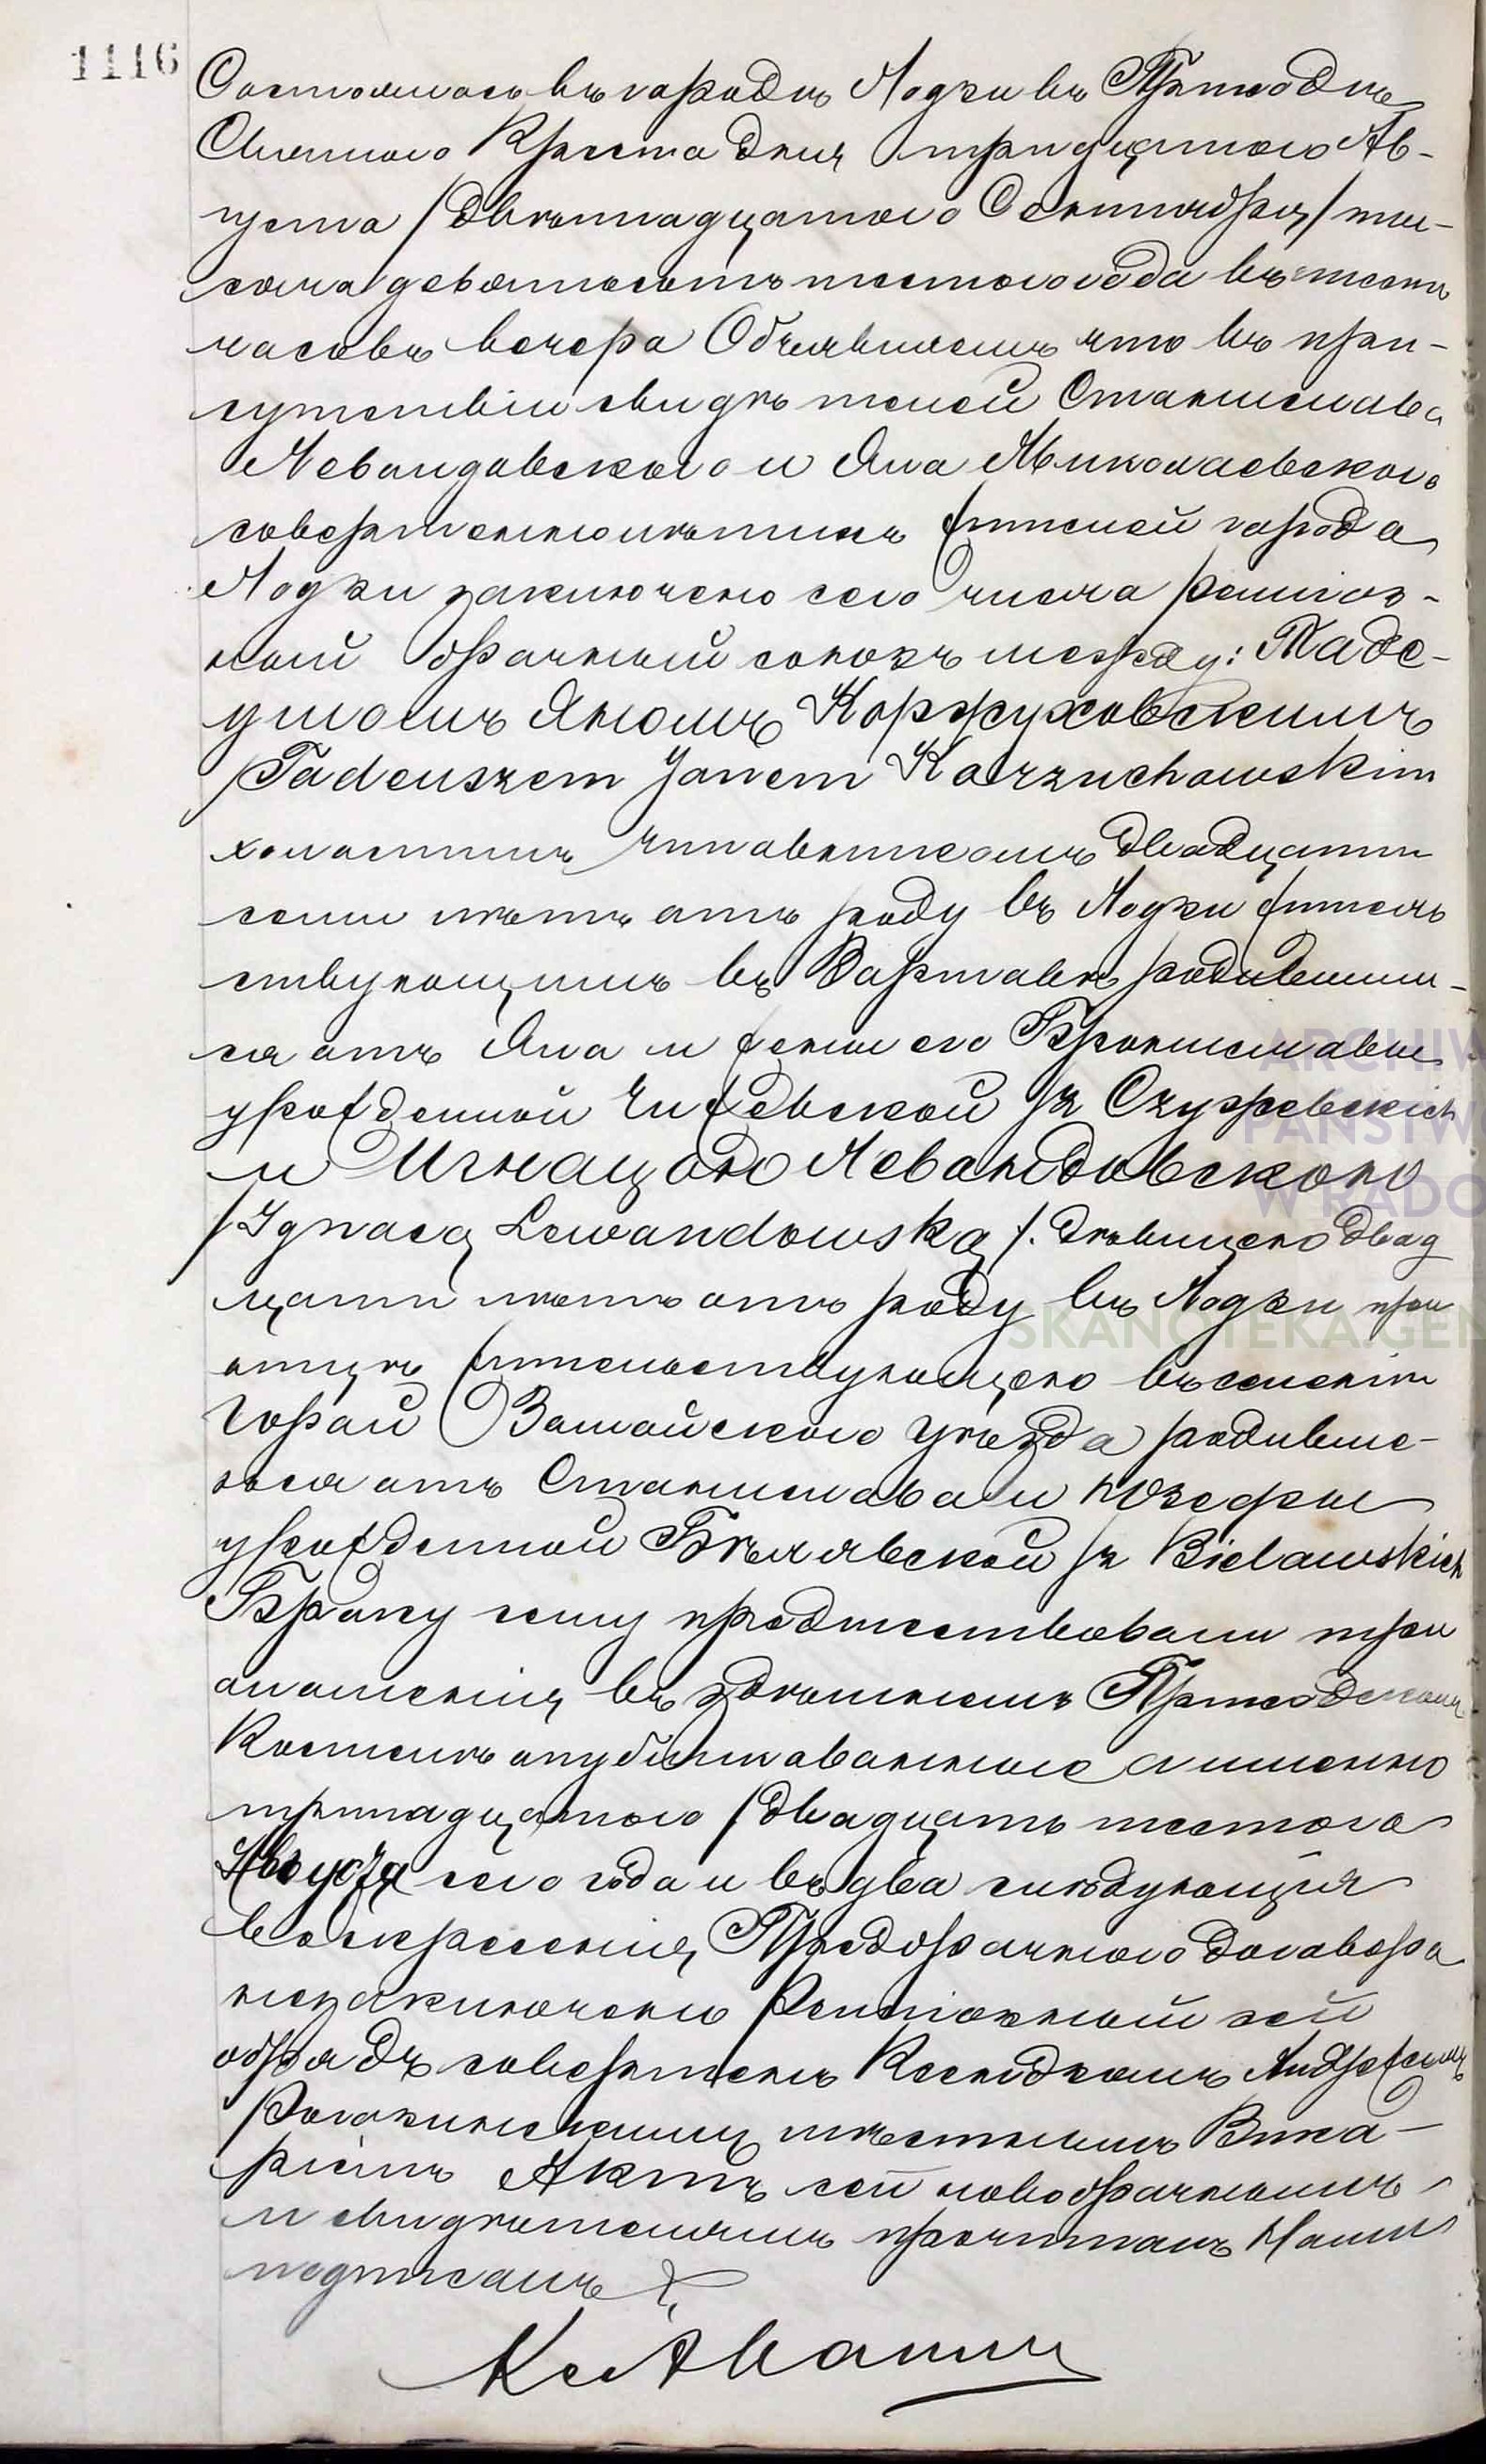 1116
Состоялось въ городѣ Лодзи въ Приходѣ
Святого Креста дня тридцатого Ав-
густа /двѣнадцатого Сентября/ ты-
сяча девятьсотъ шестого года въ шесть
часовъ вечера Объявляемъ что въ при-
сутствіи свидѣтелей Станислава
Левандовского и Яна Миколаевского
совершеннолѣтнихъ жителей города
Лодзи заключено сего числа религіоз-
ный брачный союзъ между: Таде-
ушомъ Яномъ Коржуховскимъ
/Tadeuszem Janem Korzuchowskim
холостымъ чиновникомъ двадцати
семи лѣтъ отъ роду въ Лодзи житель
ствующимъ въ Варшавѣ родившим-
ся отъ Яна и жены его Брониславы
урожденной Чижевской /z Czyżewskich
и Игнацою Левандовскою
/Ignacą Lewandowską/. дѣвицею двад
цати лѣтъ отъ роду въ Лодзи при
отцѣ жительствующею въ селеніи
Горай Замойского уѣзда родивше-
юся отъ Станислава и Юзефы
урожденной Бѣлявской /z Bielawskich
Браку сему предшествовали три
оглашенія въ здѣшнемъ Приходскомъ
Костелѣ опубликованные а именно
тринадцатого /двадцать шестого
Августа сего года и въ два слѣдующія
воскресенія Предбрачного договора
незаключено Религіозный сей
обрядъ совершенъ Ксендзомъ Андржеемъ
мѣстнымъ Вика-
ріемъ Актъ сей новобрачнымъ
и свидѣтелямъ прочитанъ Нами
подписанъ
ARCHIW
PAŃSTWO
W RADO
SKANOTEKA.GEN